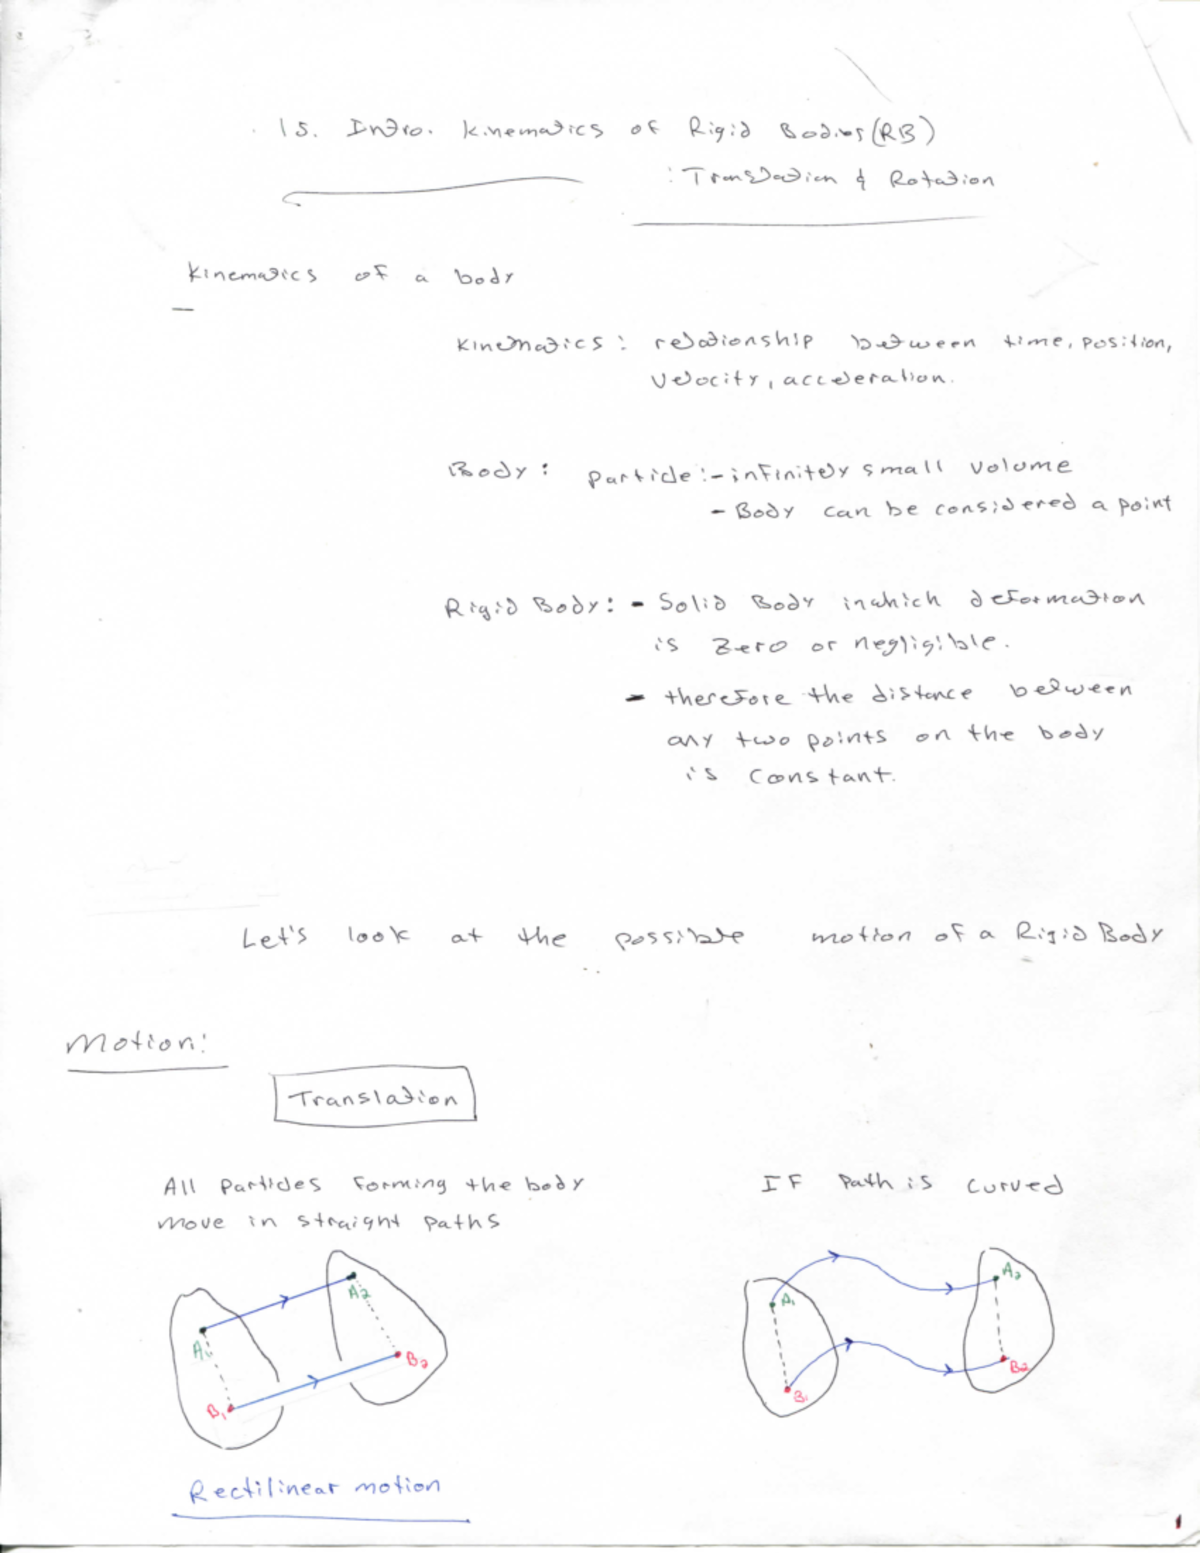 15. Intro. Kinematics of Rigid Bodies (RB)
: Translation & Rotation
Kinematics of a body
Kinematics: relationship between time, position,
velocity, acceleration.
Body: particle: - infinitely small volume
- Body can be considered a point
Rigid Body: - Solid Body inwhich deformation
is zero or negligible.
- therefore the distance between
any two points on the body
is constant.
Let's look at the possible motion of a Rigid Body
Motion:
Translation
All particles forming the body
move in straight paths
If Path is curved
A1
A2
B1
B2
A1
A2
B1
B2
Rectilinear motion
1